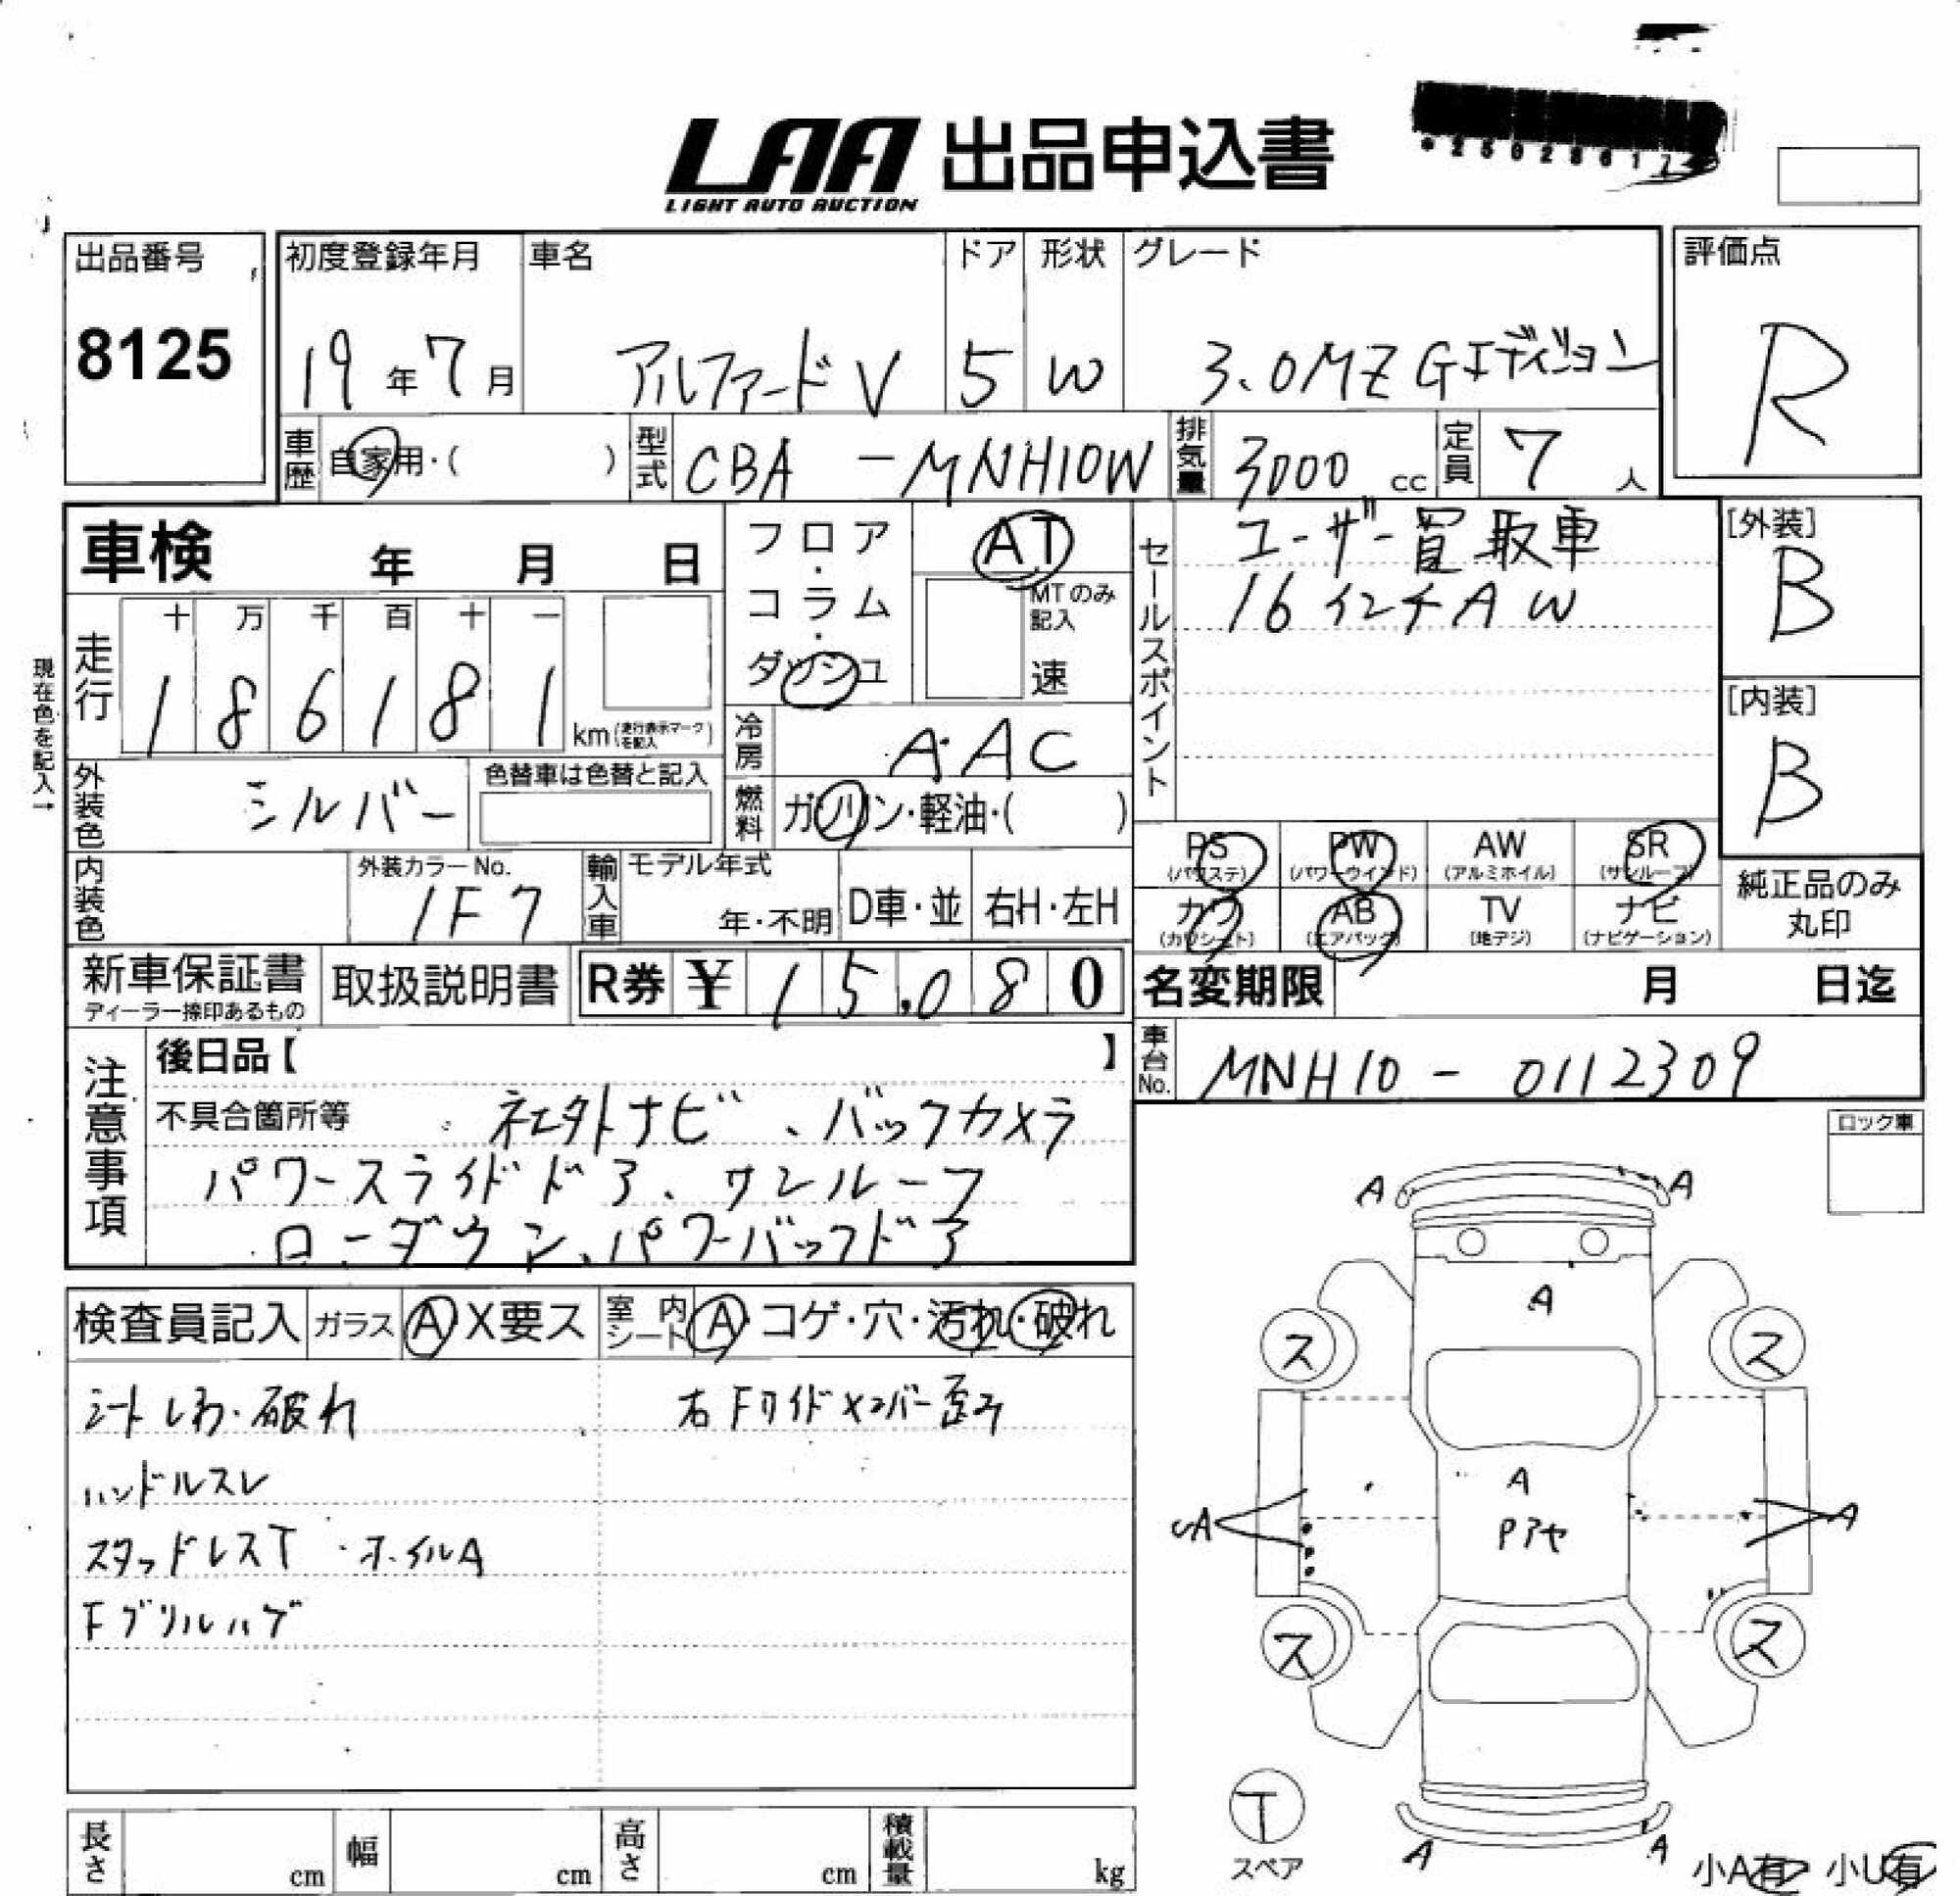 LAA 出品申込書
LIGHT AUTO AUCTION
*25028617
出品番号
8125
初度登録年月 車名 ドア 形状 グレード
19年7月 アルファードV 5 W 3.0MZ Gエディション
評価点
R
車歴 自家用・( ) 型式 CBA -MNH10W 排気量 3000 cc 定員 7 人
車検 年 月 日
フロア・コラム・ダッシュ
AT
MTのみ記入
速
セールスポイント
ユーザー買取車
16インチAW
[外装]
B
[内装]
B
現在色を記入→
走行 十 万 千 百 十 一
186181
km(走行表示マークを記入)
冷房 A.AC
外装色 シルバー 色替車は色替と記入
燃料 ガソリン・軽油・( )
PS (パワステ) PW (パワーウインド) AW (アルミホイル) SR (サンルーフ)
カワ (カワシート) AB (エアバッグ) TV (地デジ) ナビ (ナビゲーション)
純正品のみ
丸印
内装色 外装カラーNo. 1F7
輸入車 モデル年式 年・不明 D車・並 右H・左H
新車保証書 ディーラー捺印あるもの 取扱説明書 R券 ¥15,080
名変期限 月 日迄
車台No. MNH10 - 0112309
注意事項
後日品【 】
不具合箇所等 社外ナビ、バックカメラ
パワースライドドア、サンルーフ
ローダウン、パワーバックドア
ロック車
検査員記入 ガラス A X要ス 室内シート A・コゲ・穴・汚れ・破れ
シートしわ・破れ 右Fサイドメンバー歪み
ハンドルスレ
スタッドレスT・ホイルA
Fグリルハゲ
A A
A
ス ス
A
A A
Pアヤ
ス ス
T
スペア
A A
小A有 小U有
長さ cm 幅 cm 高さ cm 積載量 kg